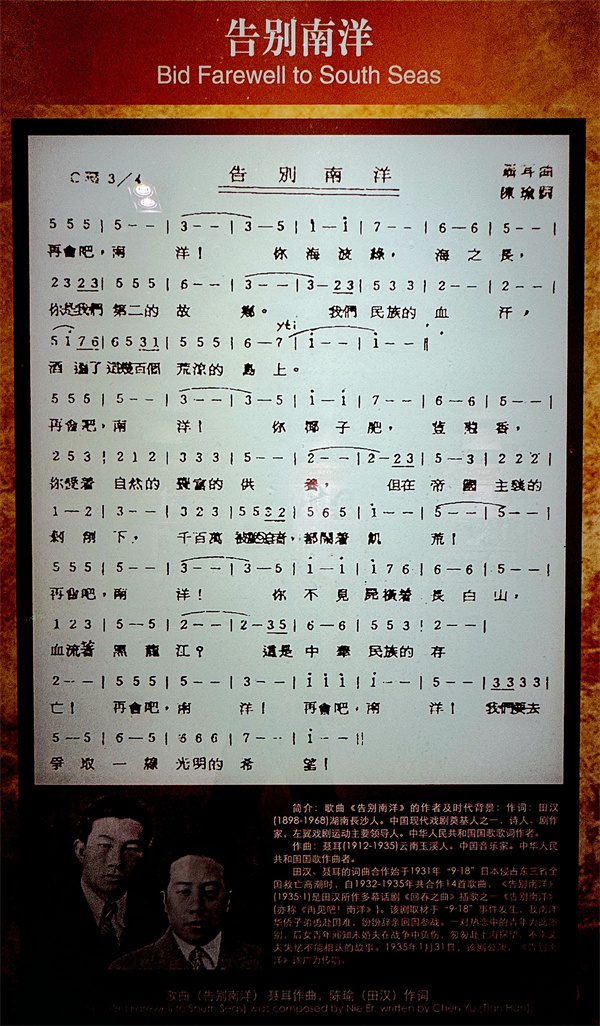 告别南洋
Bid Farewell to South Seas
C 調 3/4
告別南洋
聶耳曲
陳瑜詞
5 5 5 | 5 - - | 3 - - | 3 - 5 | i - i | 7 - - | 6 - 6 | 5 - - |
再會吧,南洋!你海波綠,海之長,
2 3 2 3 | 5 5 5 | 6 - - | 3 - - | 3 - 2 3 | 5 3 3 | 2 - - | 2 - - |
你是我們第二的故鄉。我們民族的血汗,
yti
5 i 7 6 | 6 5 3 1 | 5 5 5 | 6 - 7 | i - - | i - - ||
酒遍了這幾百個荒涼的島上。
5 5 5 | 5 - - | 3 - - | 3 - 5 | i - i | 7 - - | 6 - 6 | 5 - - |
再會吧,南洋!你椰子肥,荳蔻香,
2 5 3 | 2 1 2 | 3 3 3 | 5 - - | 2 - - | 2 - 2 3 | 5 - 3 | 2 2 2 |
你受着自然的豐富的供養,但在帝國主義的
1 - 2 | 3 - - | 3 2 3 | 5 5 3 2 | 5 6 5 | i - - | 5 - - | 5 - - |
剝削下,千百萬被壓迫者,都鬧着飢荒!
5 5 5 | 5 - - | 3 - - | 3 - 5 | i - i | i 7 6 | 6 - 6 | 5 - - |
再會吧,南洋!你不見屍橫着長白山,
1 2 3 | 5 - 5 | 2 - - | 2 - 3 5 | 6 - 6 | 5 5 3 | 2 - - |
血流着黑龍江?這是中華民族的存
2 - - | 5 5 5 | 5 - - | 3 - - | i i i | i - - | 5 - - | 3 3 3 3 |
亡!再會吧,南洋!再會吧,南洋!我們要去
5 - 5 | 6 - 5 | 6 6 6 | 7 - - | i - - ||
爭取一線光明的希望!
简介:歌曲《告别南洋》的作者及时代背景:作词:田汉
(1898-1968)湖南長沙人。中国现代戏剧奠基人之一,诗人、剧作
家,左翼戏剧运动主要领导人。中华人民共和国国歌歌词作者。
作曲:聂耳(1912-1935)云南玉溪人。中国音乐家。中华人民
共和国国歌作曲者。
田汉、聂耳的词曲合作始于1931年“9·18”日本侵占东三省全
国救亡高潮时,自1932-1935年共合作14首歌曲,《告别南洋》
(1935·1)是田汉所作多幕话剧《回春之曲》插歌之一《告别南洋》
(亦称《再见吧!南洋》)。该剧取材于“9·18”事件发生,
华侨子弟勇赴国难,纷纷辞亲回国参战。一对热恋中的青年为此
别,后女青年闻知未婚夫在战争中负伤,匆匆赴上海探望,
夫失忆不能相认的故事。1935年1月31日,该剧公演,《告别南
洋》遂广为传唱。
歌曲《告别南洋》聂耳作曲,陈瑜(田汉)作词
Farewell to South Seas) was composed by Nie Er, written by Chen Yu (Tian Han).